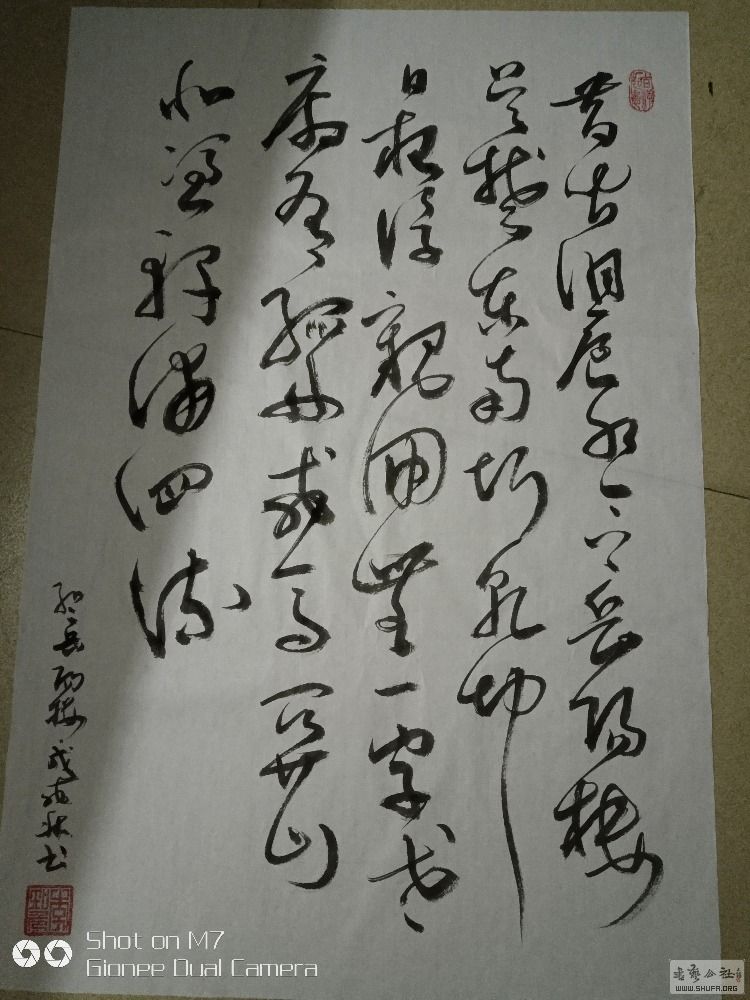 昔聞洞庭水今上岳陽樓
吳楚東南坼乾坤
日夜浮親朋無一字老
病有孤舟戎馬關山
北憑軒涕泗流
登岳陽樓戊戌秋書
Shot on M7
Gionee Dual Camera
书艺公社
WWW.SHUFA.ORG